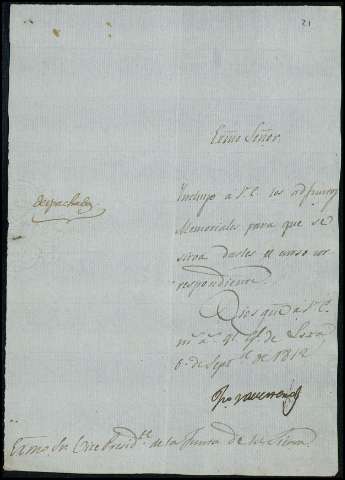 21
Exmo Señor.
despachado
Incluyo a V.E. los adjuntos
Memoriales para que se
sirva darles el curso cor
respondiente.
Dios gūe à V.E.
m.s a.s
6,, de Sept.e de 1812
Exmo Sr. Vice Presid.te de la Junta de